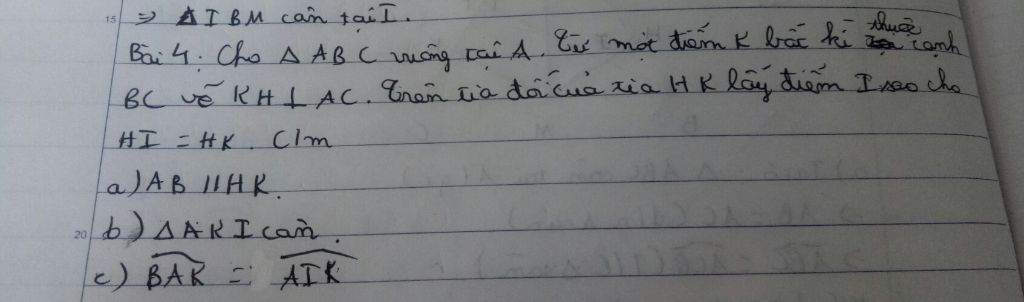 15 => Δ IBM cân tại I.
Bài 4: Cho Δ ABC vuông tại A. Từ một điểm K bất kì thuộc cạnh
BC vẽ KH ⊥ AC. Trên tia đối của tia HK lấy điểm I sao cho
HI = HK. C/m
a) AB // HK.
20 b) Δ AKI cân.
c) \widehat{BAK} = \widehat{AIK}